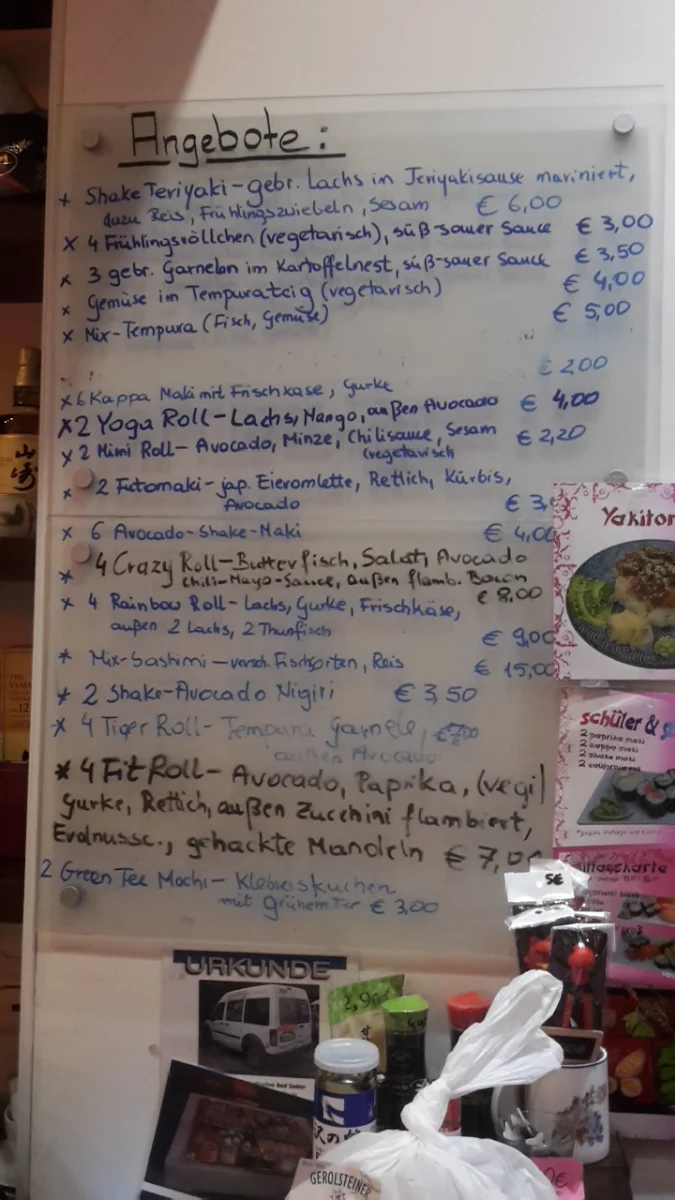 Angebote:
x Shake Teriyaki-gebr. Lachs in Teriyakisause mariniert,
dazu Reis, Frühlingszwiebeln, Sesam € 6,00
x 4 Frühlingsröllchen (vegetarisch), süß-sauer Sauce € 3,00
x 3 gebr. Garnelen im Kartoffelnest, süß-sauer Sauce € 3,50
x Gemüse im Tempurateig (vegetarisch) € 4,00
x Mix-Tempura (Fisch, Gemüse) € 5,00
€ 2,00
x 6 Kappa Maki mit Frischkäse, Gurke
x 2 Yoga Roll-Lachs, Mango, außen Avocado € 4,00
x 2 Mimi Roll- Avocado, Minze, Chilisauce, Sesam € 2,20
(vegetarisch
x 2 Futomaki-jap. Eieromlette, Retlich, Kürbis,
Avocado € 3,
x 6 Avocado-Shake-Maki € 4,00
* 4 Crazy Roll-Butterfisch, Salat, Avocado
Chili-Mayo-Sauce, außen flamb. Bacon € 8,00
x 4 Rainbow Roll-Lachs, Gurke, Frischkäse,
außen 2 Lachs, 2 Thunfisch € 9,00
* Mix-Sashimi-versch. Fischsorten, Reis € 15,00
* 2 Shake-Avocado Nigiri € 3,50
* 4 Tiger Roll-Tempura Garnele, € 7,00
außen Avocado
* 4 Fit Roll-Avocado, Paprika, (vegi)
Gurke, Rettich, außen Zucchini flambiert,
Erdnusse., gehackte Mandeln € 7,00
2 Green Tee Mochi-Klebreiskuchen
mit grünem Tee € 3,00
Yakitor
schüler & S
2 paprika maki
2 kappa maki
2 shake maki
ittagskarte
5€
URKUNDE
2,90
GEROLSTEINER
山